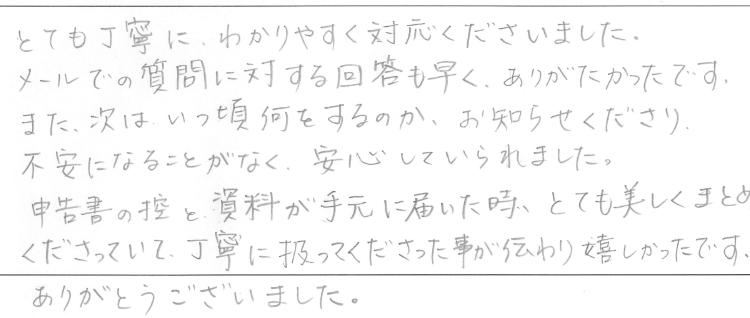 とても丁寧に、わかりやすく対応くださいました。
メールでの質問に対する回答も早く、ありがたかったです。
また、次は、いつ頃何をするのか、お知らせくださり、
不安になることがなく、安心していられました。
申告書の控と、資料が手元に届いた時、とても美しくまとめ
くださっていて、丁寧に扱ってくださった事が伝わり嬉しかったです。
ありがとうございました。